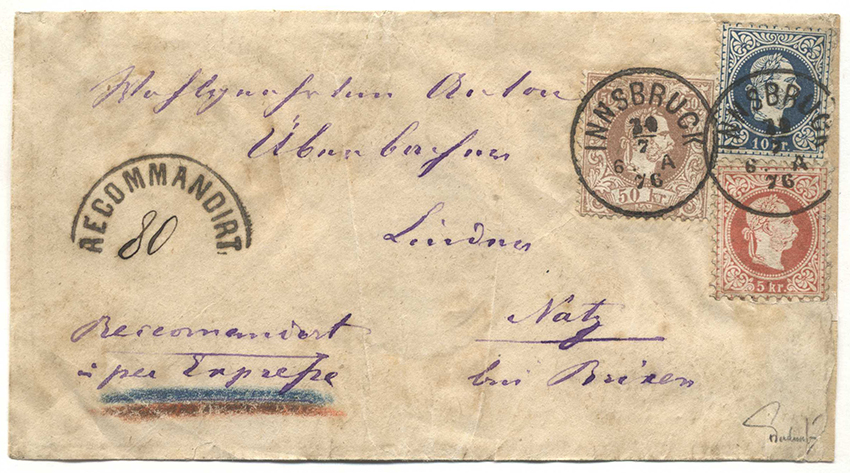 Wohlgeehrten Anton
Überbacher
Lindner
Natz
bei Brixen
Reccomandirt
u per Expreße
RECOMMANDIRT.
80
INNSBRUCK
7
6 A
76
50 kr.
INNSBRUCK
7
6 A
76
10 kr.
5 kr.